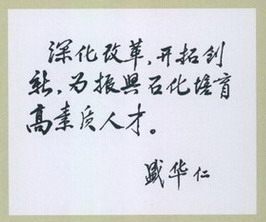 深化改革,开拓创
新,为振興石化培育
高素质人才。
盛华仁